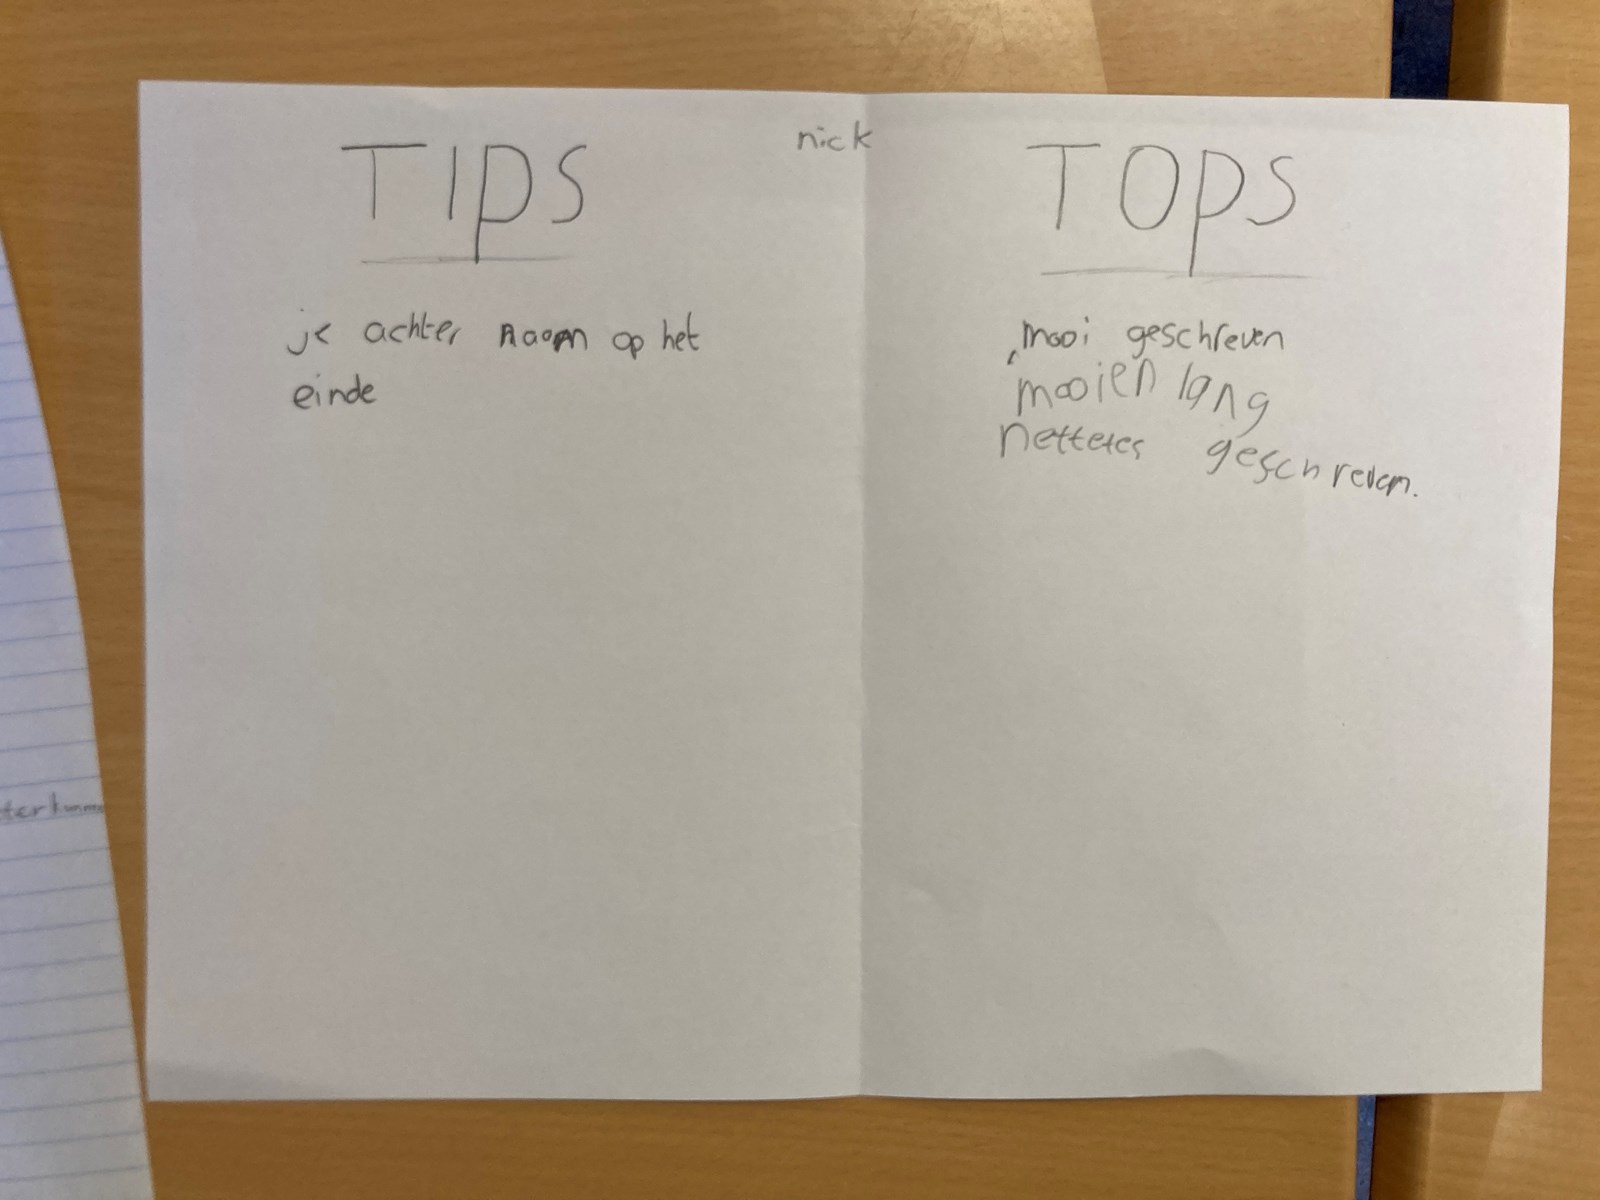 nick
TIPS
je achter naam op het
einde
TOPS
mooi geschreven
mooien lang
nettetes geschreven.